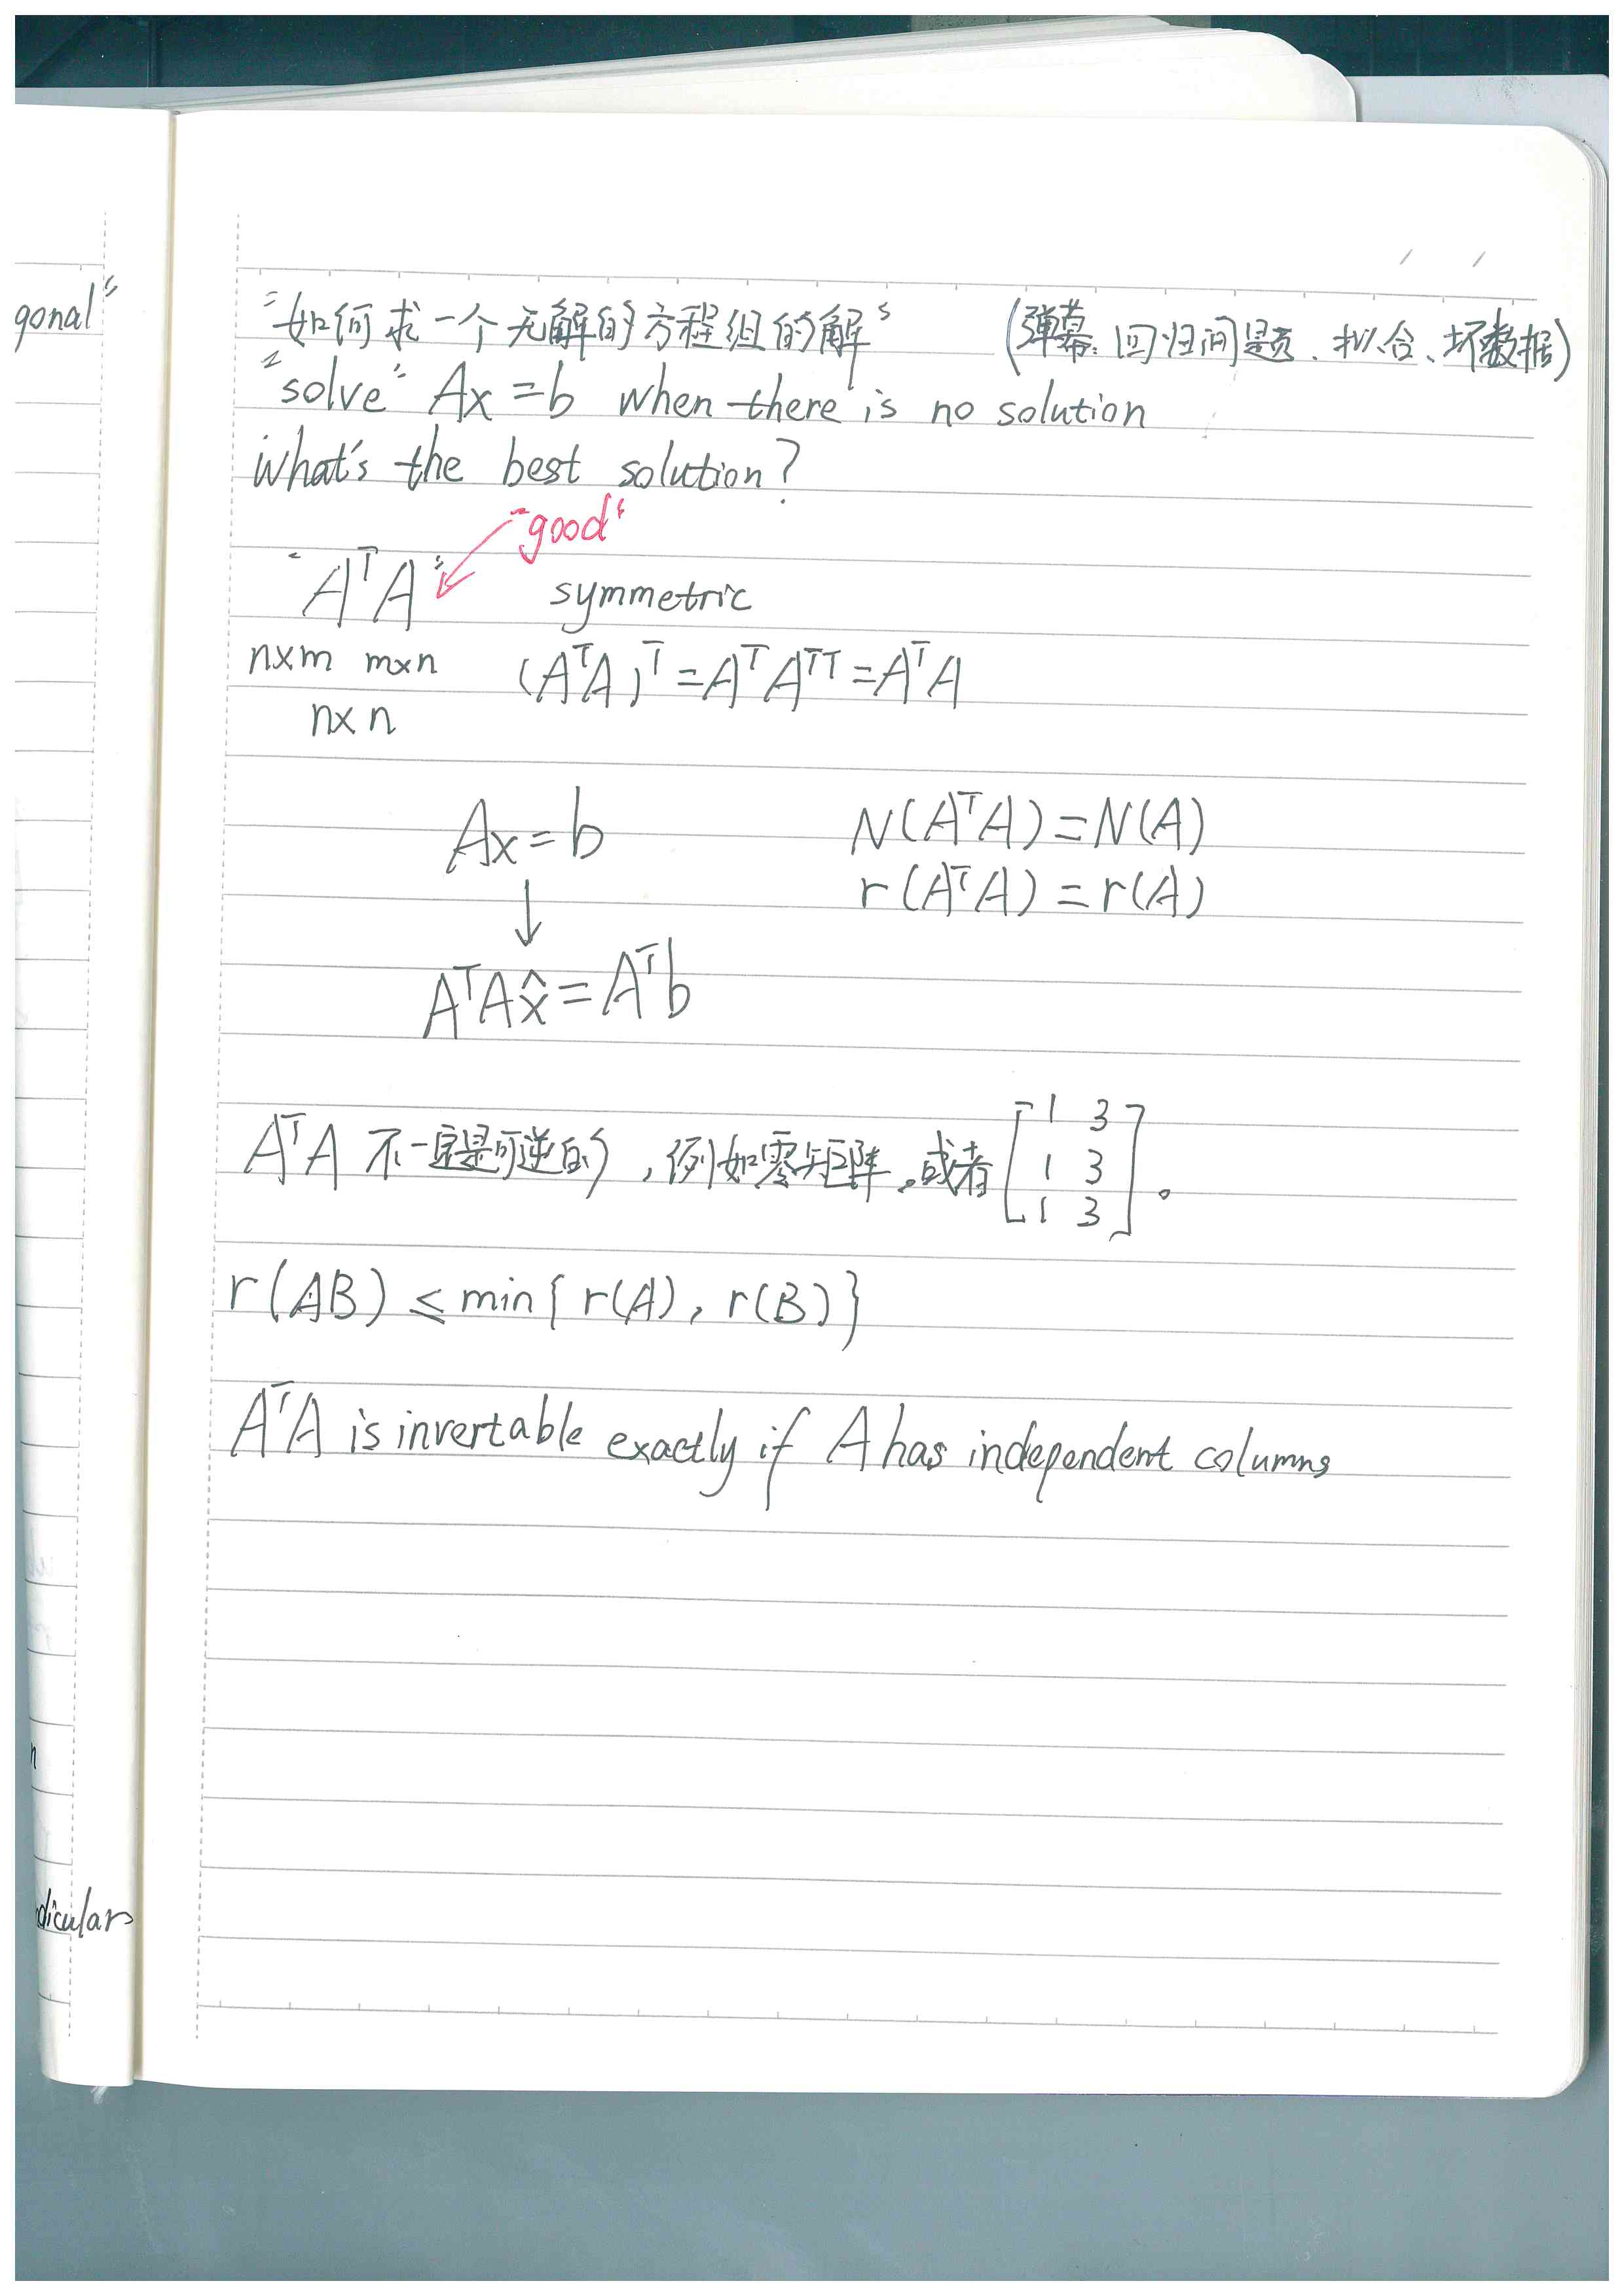 gonal"
"如何求一个无解的方程组的解" (弹幕:回归问题、拟合、坏数据)
"solve" Ax=b when there is no solution
what's the best solution?
"good"
"AᵀA" symmetric
n×m m×n (AᵀA)ᵀ=AᵀAᵀᵀ=AᵀA
n×n
Ax=b N(AᵀA)=N(A)
↓ r(AᵀA)=r(A)
AᵀAx̂=Aᵀb
AᵀA 不一定是可逆的,例如零矩阵。或者[1 3
1 3
1 3]。
r(AB)≤min{r(A), r(B)}
AᵀA is invertable exactly if A has independent columns
n
dicular